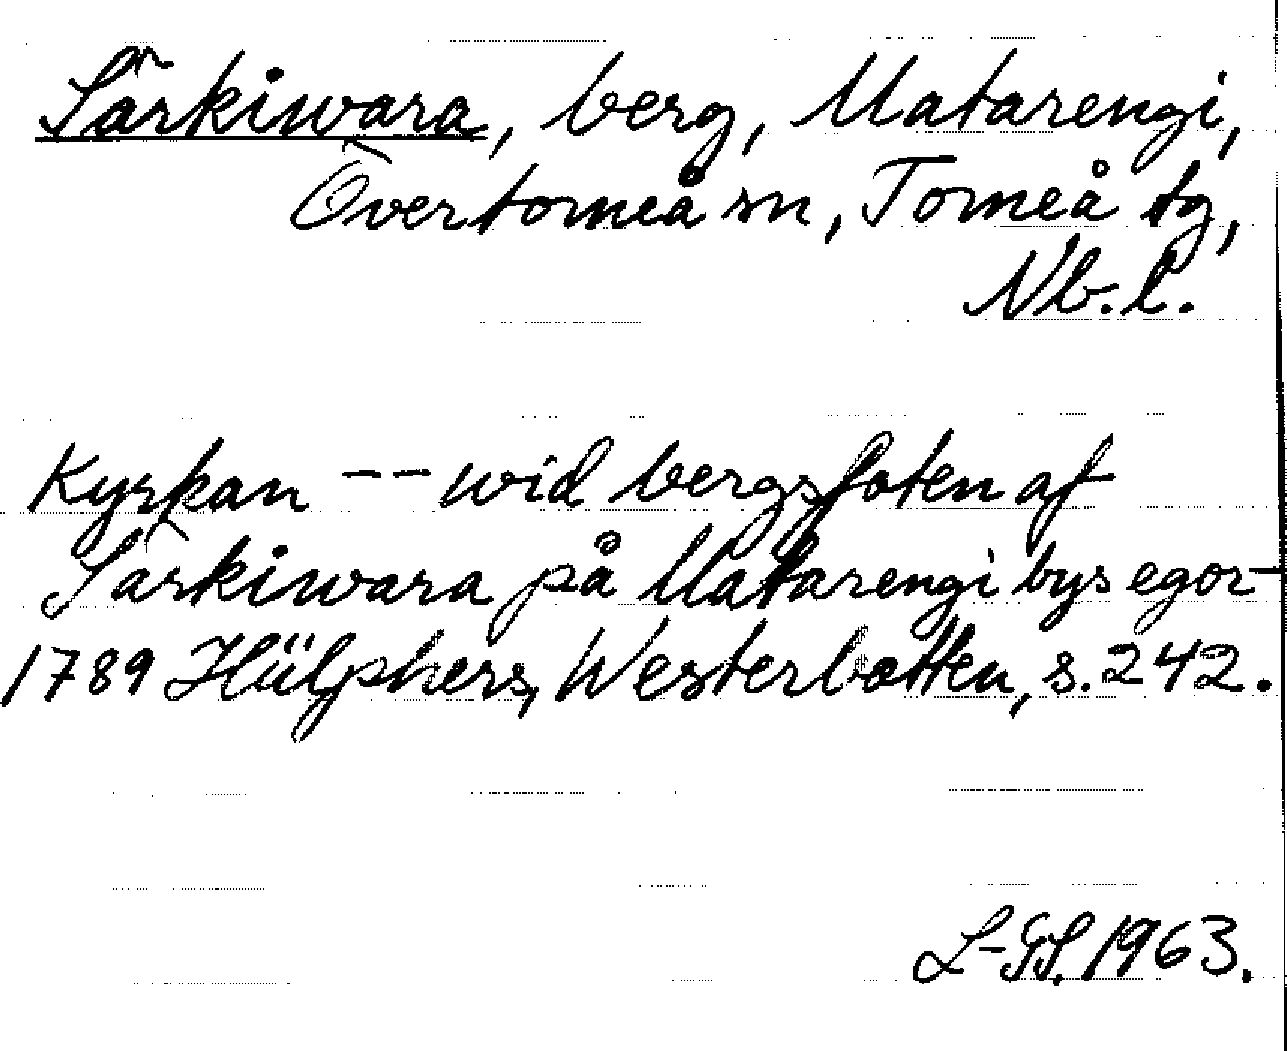 Särkiwara, berg, Matarengi,
Övertorneå sn, Torneå tg,
Nb. l.
Kyrkan -- wid bergsfoten af
Särkiwara på Matarengi bys egor
1789 Hülphers, Westerbotten, s. 242.
L-GS. 1963.